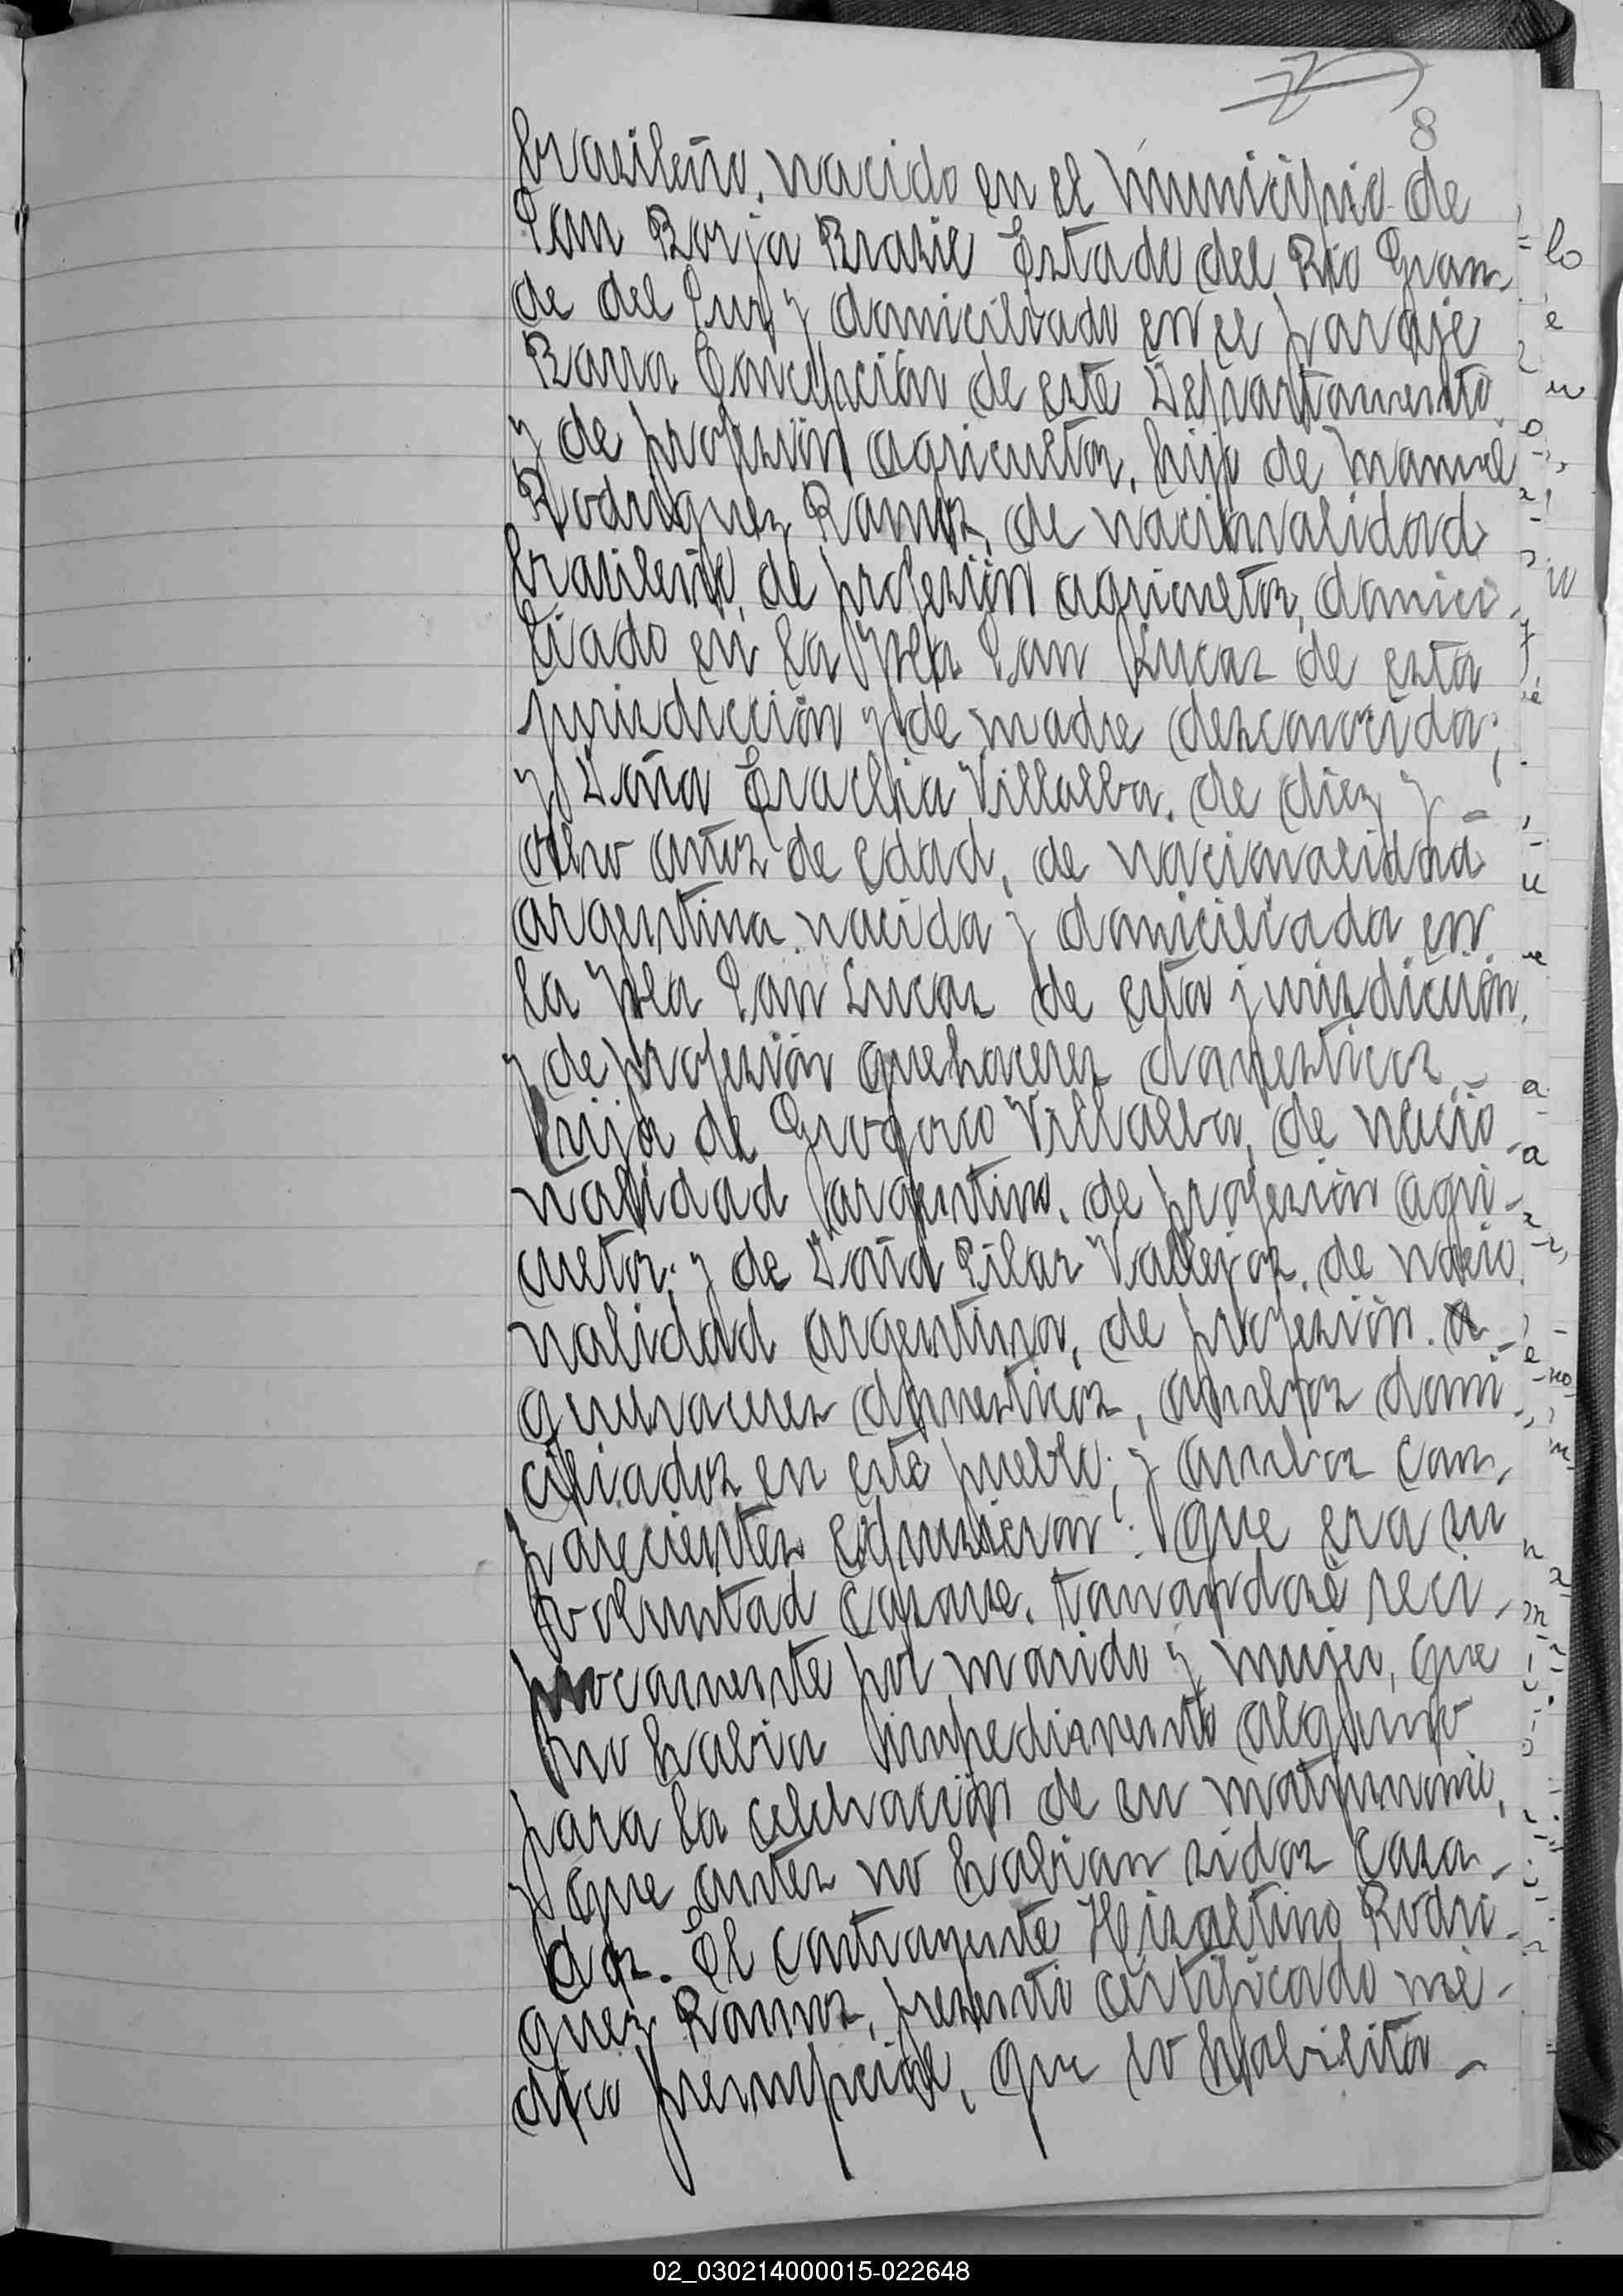 8
brasileño, nacido en el Municipio de
San Borja Brasil Estado del Rio Gran
de del Sur, y domiciliado en el paraje
Barra Concepción de este Departamento
y de profesión agricultor, hijo de Manuel
Rodriguez Ramos, de nacionalidad
brasileño, de profesión agricultor, domici
liado en la Ysla San Lucas de esta
jurisdicción y de madre desconocida;
y Doña Villalba, de diez y -
ocho años de edad, de nacionalidad
argentina, nacida y domiciliada en
la Ysla San Lucas de esta jurisdicción,
y de profesión quehaceres domesticos,
hija de Villalba, de nacio
nalidad argentino, de profesión agri-
cultor; y de Doña Pilar Vallejos, de nacio
nalidad argentina, de profesión
quehaceres domesticos, ambos domi
ciliados en este pueblo; y ambos com
parecientes expusieron: que era su
voluntad casarse, tomandose reci
procamente por marido y mujer, que
no habia impedimento alguno
para la celebración de su matrimonio,
y que antes no habian sidos casa-
dos. El contrayente Rodri
guez Ramos, presentó certificado mé-
dico prenupcial, que lo habilita -
02_030214000015-022648